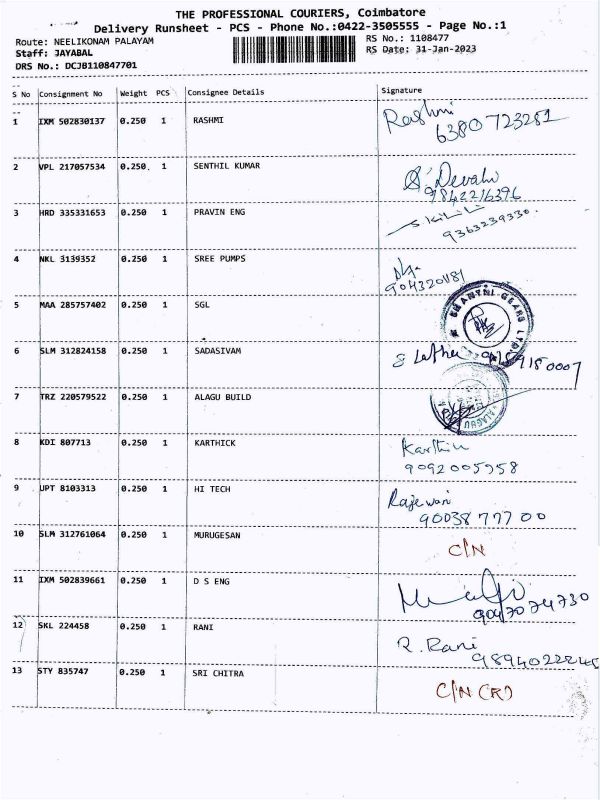 THE PROFESSIONAL COURIERS, Coimbatore
Delivery Runsheet - PCS - Phone No.:0422-3505555 - Page No.:1
Route: NEELIKONAM PALAYAM RS No.: 1108477
Staff: JAYABAL RS Date: 31-Jan-2023
DRS No.: DCJB110847701
S No Consignment No Weight PCS Consignee Details Signature
1 IXM 502830137 0.250 1 RASHMI Rashmi
6380723281
2 VPL 217057534 0.250 1 SENTHIL KUMAR S. Devahi
9842216396
3 HRD 335331653 0.250 1 PRAVIN ENG
9363239330.
4 NKL 3139352 0.250 1 SREE PUMPS
5 MAA 285757402 0.250 1 SGL SHANTHI GEARS LTD.
6 SLM 312824158 0.250 1 SADASIVAM
7 TRZ 220579522 0.250 1 ALAGU BUILD ALAGU
8 KDI 807713 0.250 1 KARTHICK Karthi
9092005958
9 UPT 8103313 0.250 1 HI TECH Rajewari
90038 777 00
10 SLM 312761064 0.250 1 MURUGESAN C/N
11 IXM 502839661 0.250 1 D S ENG
12 SKL 224458 0.250 1 RANI R. Rani
13 STY 835747 0.250 1 SRI CHITRA C/N (R)